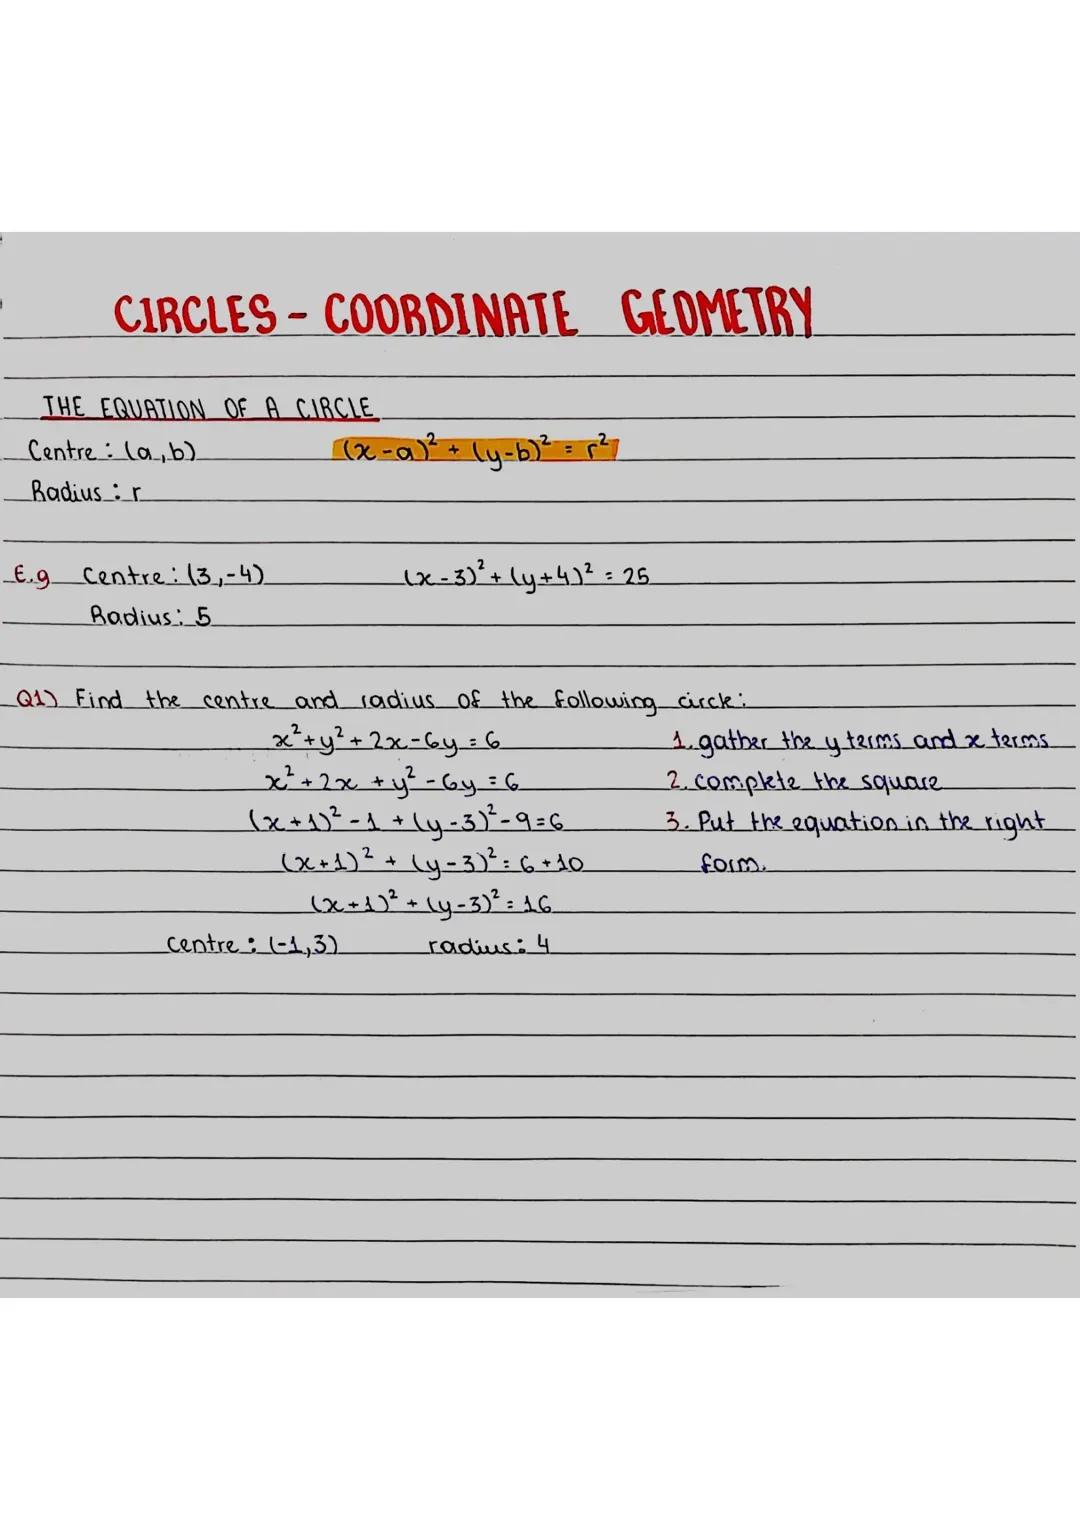 CIRCLES - COORDINATE GEOMETRY
THE EQUATION OF A CIRCLE
Centre : (a,b) (x-a)² + (y-b)² = r²
Radius : r
E.g Centre : (3,-4) (x-3)² + (y+4)² = 25
Radius : 5
Q1) Find the centre and radius of the following circle:
x² + y² + 2x - 6y = 6 1. gather the y terms and x terms
x² + 2x + y² - 6y = 6 2. complete the square
(x+1)² - 1 + (y-3)² - 9 = 6 3. Put the equation in the right
(x+1)² + (y-3)² = 6 + 10 form.
(x+1)² + (y-3)² = 16
centre : (-1,3) radius : 4